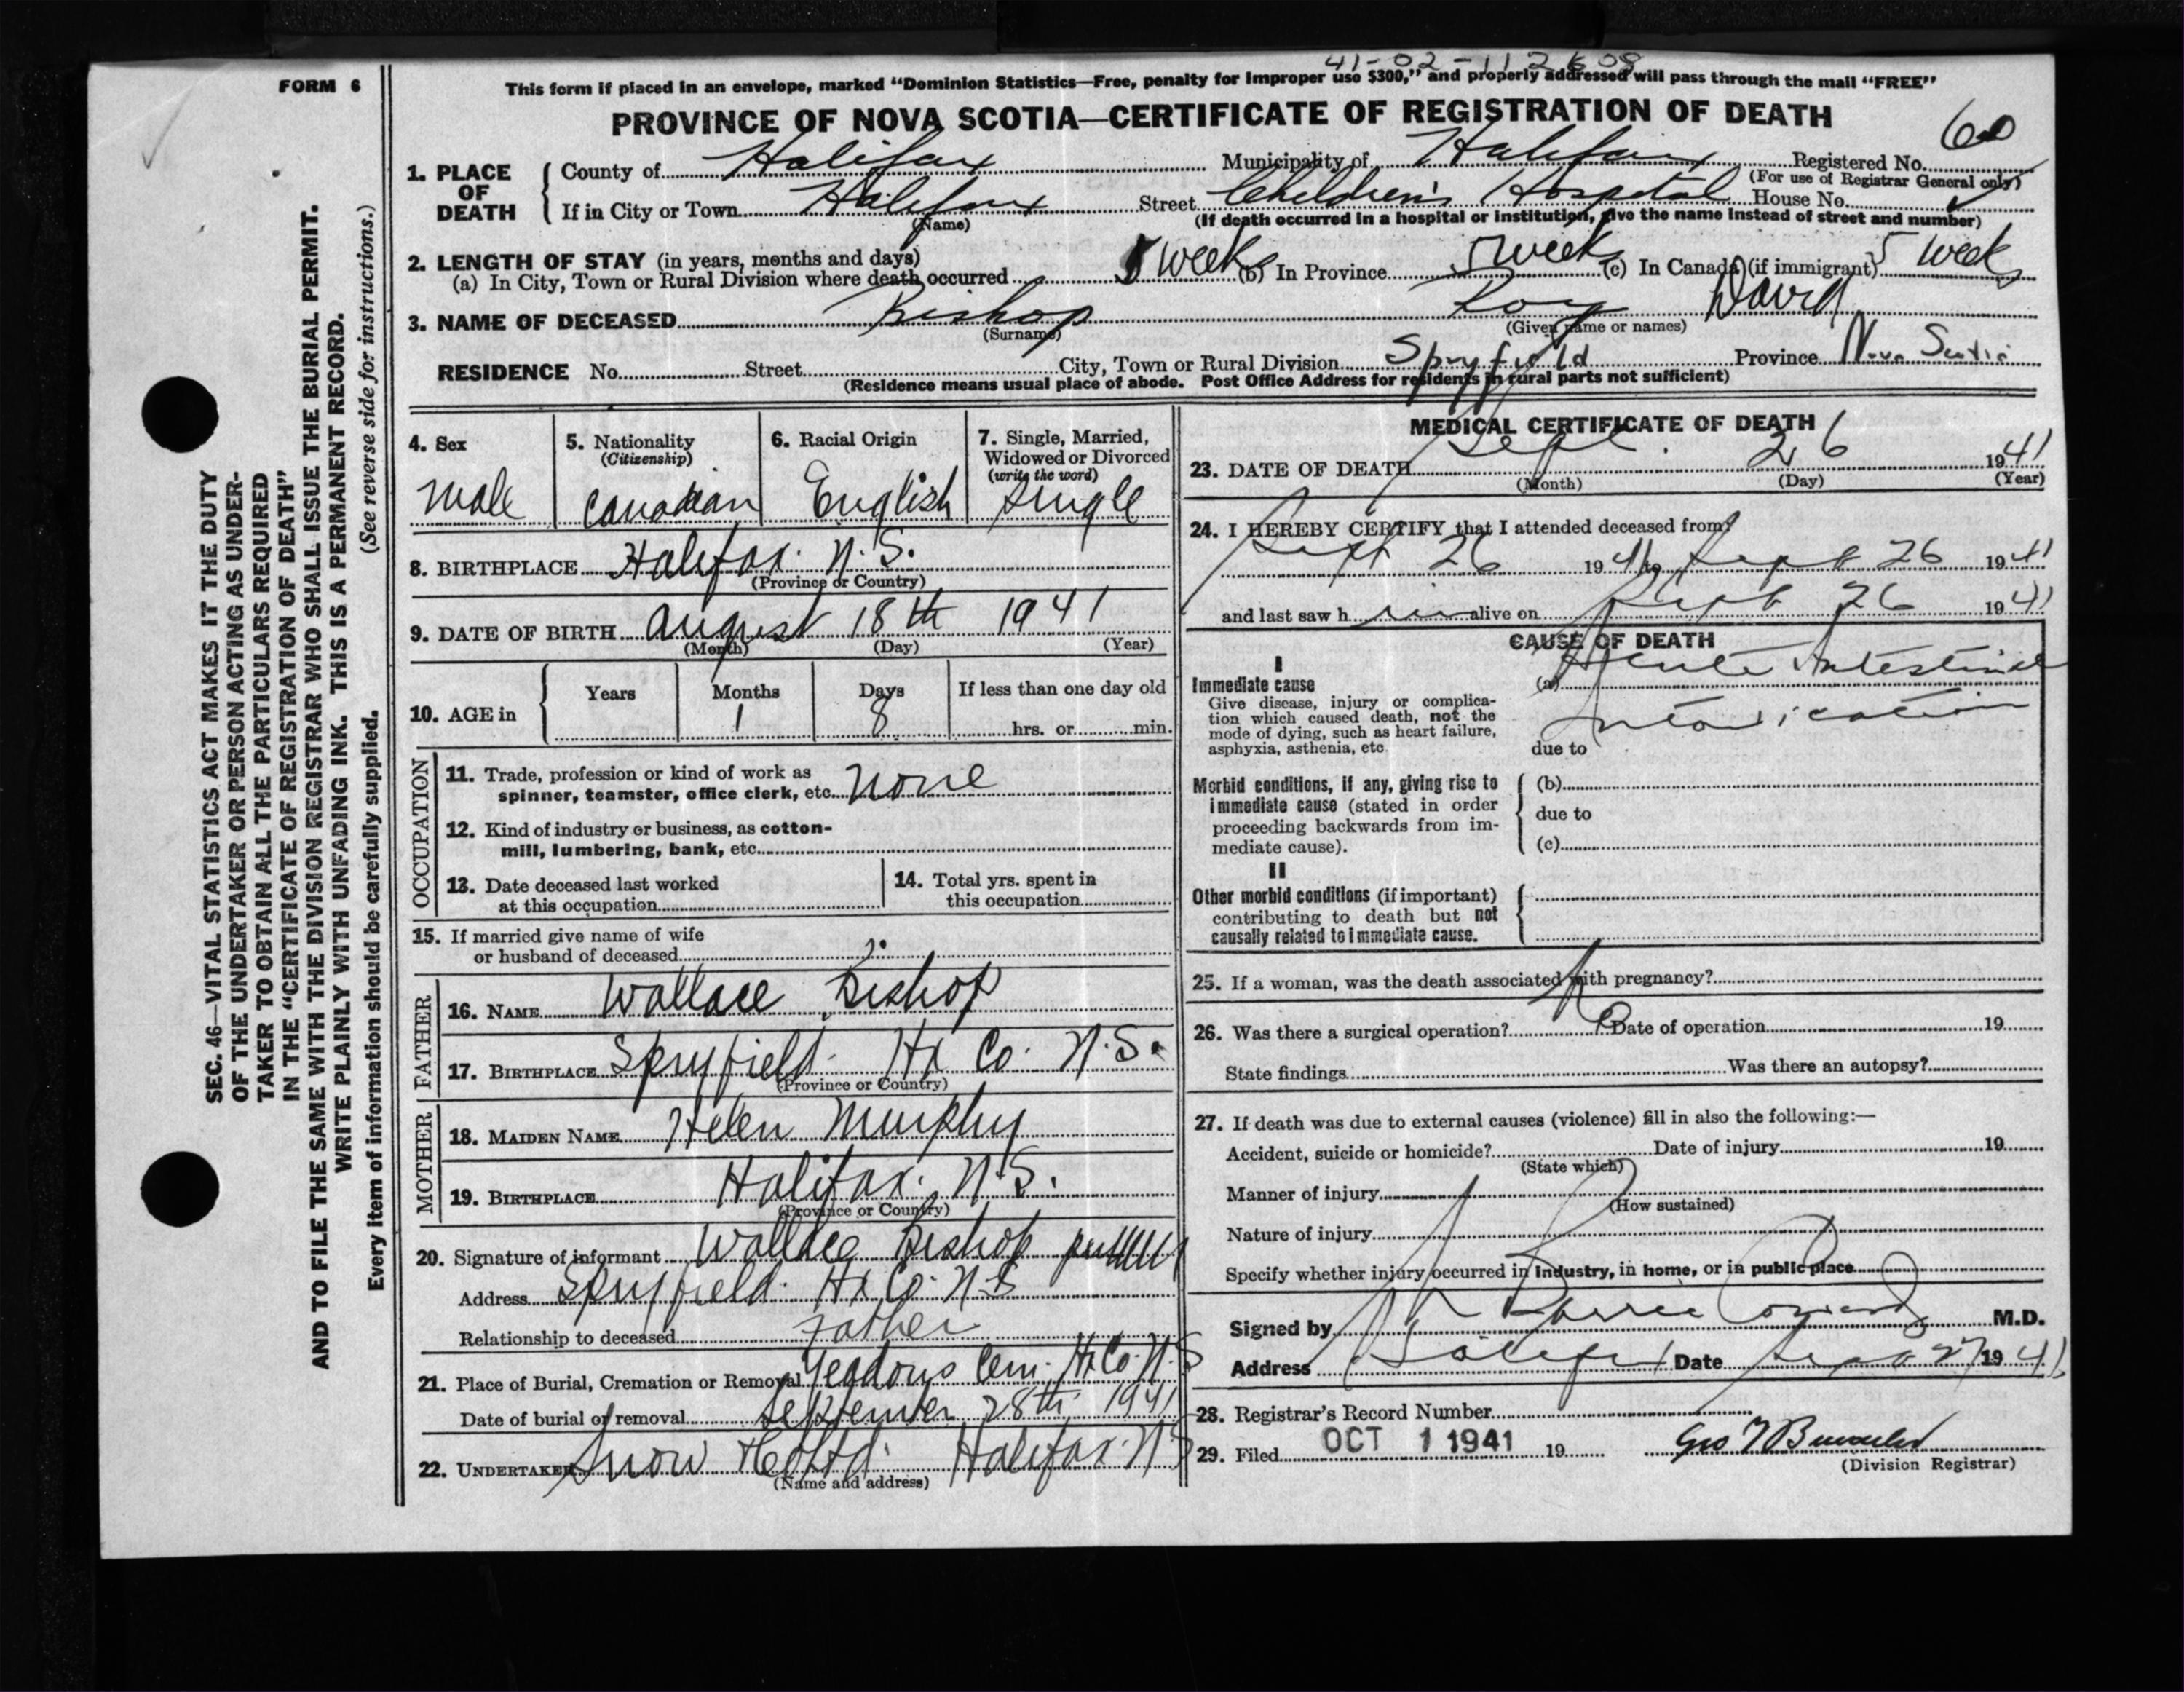 41-02-112608
FORM 6
This form if placed in an envelope, marked “Dominion Statistics—Free, penalty for improper use $300,” and properly addressed will pass through the mail “FREE”
PROVINCE OF NOVA SCOTIA—CERTIFICATE OF REGISTRATION OF DEATH
60
1. PLACE OF DEATH
County of Halifax Municipality of Halifax Registered No.
(For use of Registrar General only)
If in City or Town Halifax Street Children's Hospital House No.
(Name) (If death occurred in a hospital or institution, give the name instead of street and number)
2. LENGTH OF STAY (in years, months and days)
(a) In City, Town or Rural Division where death occurred 5 weeks (b) In Province 5 weeks (c) In Canada (if immigrant) 5 weeks
3. NAME OF DECEASED Bishop Roy David
(Surname) (Given name or names)
RESIDENCE No. Street City, Town or Rural Division Spryfield Province Nova Scotia
(Residence means usual place of abode. Post Office Address for residents in rural parts not sufficient)
4. Sex
male
5. Nationality
(Citizenship)
Canadian
6. Racial Origin
English
7. Single, Married, Widowed or Divorced
(write the word)
single
8. BIRTHPLACE Halifax. N.S.
(Province or Country)
9. DATE OF BIRTH August 18th 1941
(Month) (Day) (Year)
10. AGE in
Years Months Days If less than one day old
1 8 hrs. or min.
OCCUPATION
11. Trade, profession or kind of work as
spinner, teamster, office clerk, etc. none
12. Kind of industry or business, as cotton-
mill, lumbering, bank, etc.
13. Date deceased last worked
at this occupation
14. Total yrs. spent in
this occupation
15. If married give name of wife
or husband of deceased
FATHER
16. NAME Wallace Bishop
17. BIRTHPLACE Spryfield. Hx Co. N.S.
(Province or Country)
MOTHER
18. MAIDEN NAME Helen Murphy
19. BIRTHPLACE Halifax. N.S.
(Province or Country)
20. Signature of informant Wallace Bishop
Address Spryfield. Hx Co. N.S
Relationship to deceased Father
21. Place of Burial, Cremation or Removal Yeadons Cem. Hx Co. N.S
Date of burial or removal September 28th 1941
22. UNDERTAKER Snow & Co Ltd. Halifax. N.S
(Name and address)
MEDICAL CERTIFICATE OF DEATH
23. DATE OF DEATH Sept. 26 1941
(Month) (Day) (Year)
24. I HEREBY CERTIFY that I attended deceased from
Sept 26 1941 to Sept 26 1941
and last saw h im alive on Sept 26 1941
CAUSE OF DEATH
I
Immediate cause
Give disease, injury or complica-
tion which caused death, not the
mode of dying, such as heart failure,
asphyxia, asthenia, etc.
(a) Acute Intestinal
Intoxication
due to
Morbid conditions, if any, giving rise to
immediate cause (stated in order
proceeding backwards from im-
mediate cause).
(b)
due to
(c)
II
Other morbid conditions (if important)
contributing to death but not
causally related to immediate cause.
25. If a woman, was the death associated with pregnancy?
26. Was there a surgical operation? No Date of operation 19
State findings Was there an autopsy?
27. If death was due to external causes (violence) fill in also the following:—
Accident, suicide or homicide? Date of injury 19
(State which)
Manner of injury
(How sustained)
Nature of injury
Specify whether injury occurred in industry, in home, or in public place
Signed by M.D.
Address Halifax Date Sept 27 1941
28. Registrar's Record Number
29. Filed OCT 1 1941 19
(Division Registrar)
SEC. 46—VITAL STATISTICS ACT MAKES IT THE DUTY
OF THE UNDERTAKER OR PERSON ACTING AS UNDER-
TAKER TO OBTAIN ALL THE PARTICULARS REQUIRED
IN THE “CERTIFICATE OF REGISTRATION OF DEATH”
AND TO FILE THE SAME WITH THE DIVISION REGISTRAR WHO SHALL ISSUE THE BURIAL PERMIT.
WRITE PLAINLY WITH UNFADING INK. THIS IS A PERMANENT RECORD.
Every item of information should be carefully supplied. (See reverse side for instructions.)